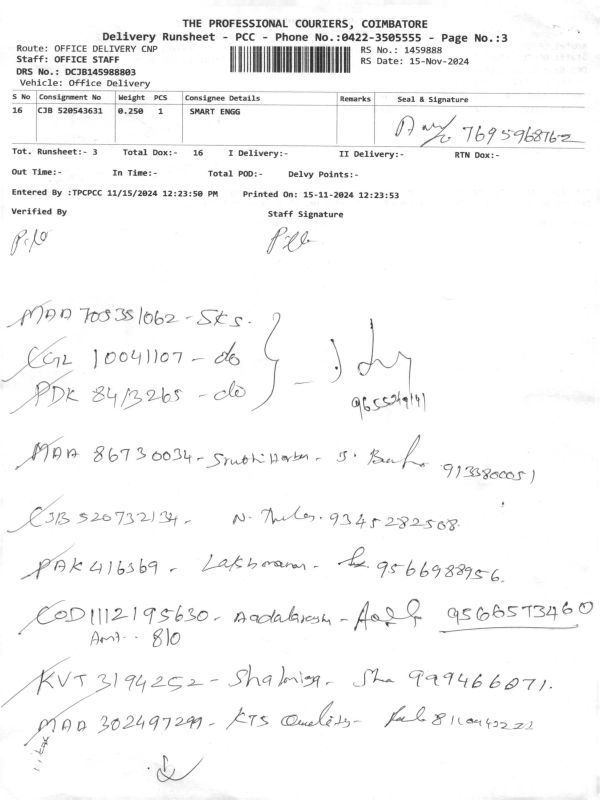 THE PROFESSIONAL COURIERS, COIMBATORE
Delivery Runsheet - PCC - Phone No.:0422-3505555 - Page No.:3
Route: OFFICE DELIVERY CNP RS No.: 1459888
Staff: OFFICE STAFF RS Date: 15-Nov-2024
DRS No.: DCJB145988803
Vehicle: Office Delivery
S No Consignment No Weight PCS Consignee Details Remarks Seal & Signature
16 CJB 520543631 0.250 1 SMART ENGG 7695968762
Tot. Runsheet:- 3 Total Dox:- 16 I Delivery:- II Delivery:- RTN Dox:-
Out Time:- In Time:- Total POD:- Delvy Points:-
Entered By :TPCPCC 11/15/2024 12:23:50 PM Printed On: 15-11-2024 12:23:53
Verified By Staff Signature
MAA 709351062 - SKS.
CGL 10041107 - do
PDK 8413265 - do
MAA 86730034 - 9133800051
CJB 520732134 - 9345282508
PAK 416369 - Lakshmanan - 9566988956.
COD 1112195630 - 9566573460
Amt - 810
KVT 3194252 - 999466071.
MAA 302497299 - KTS